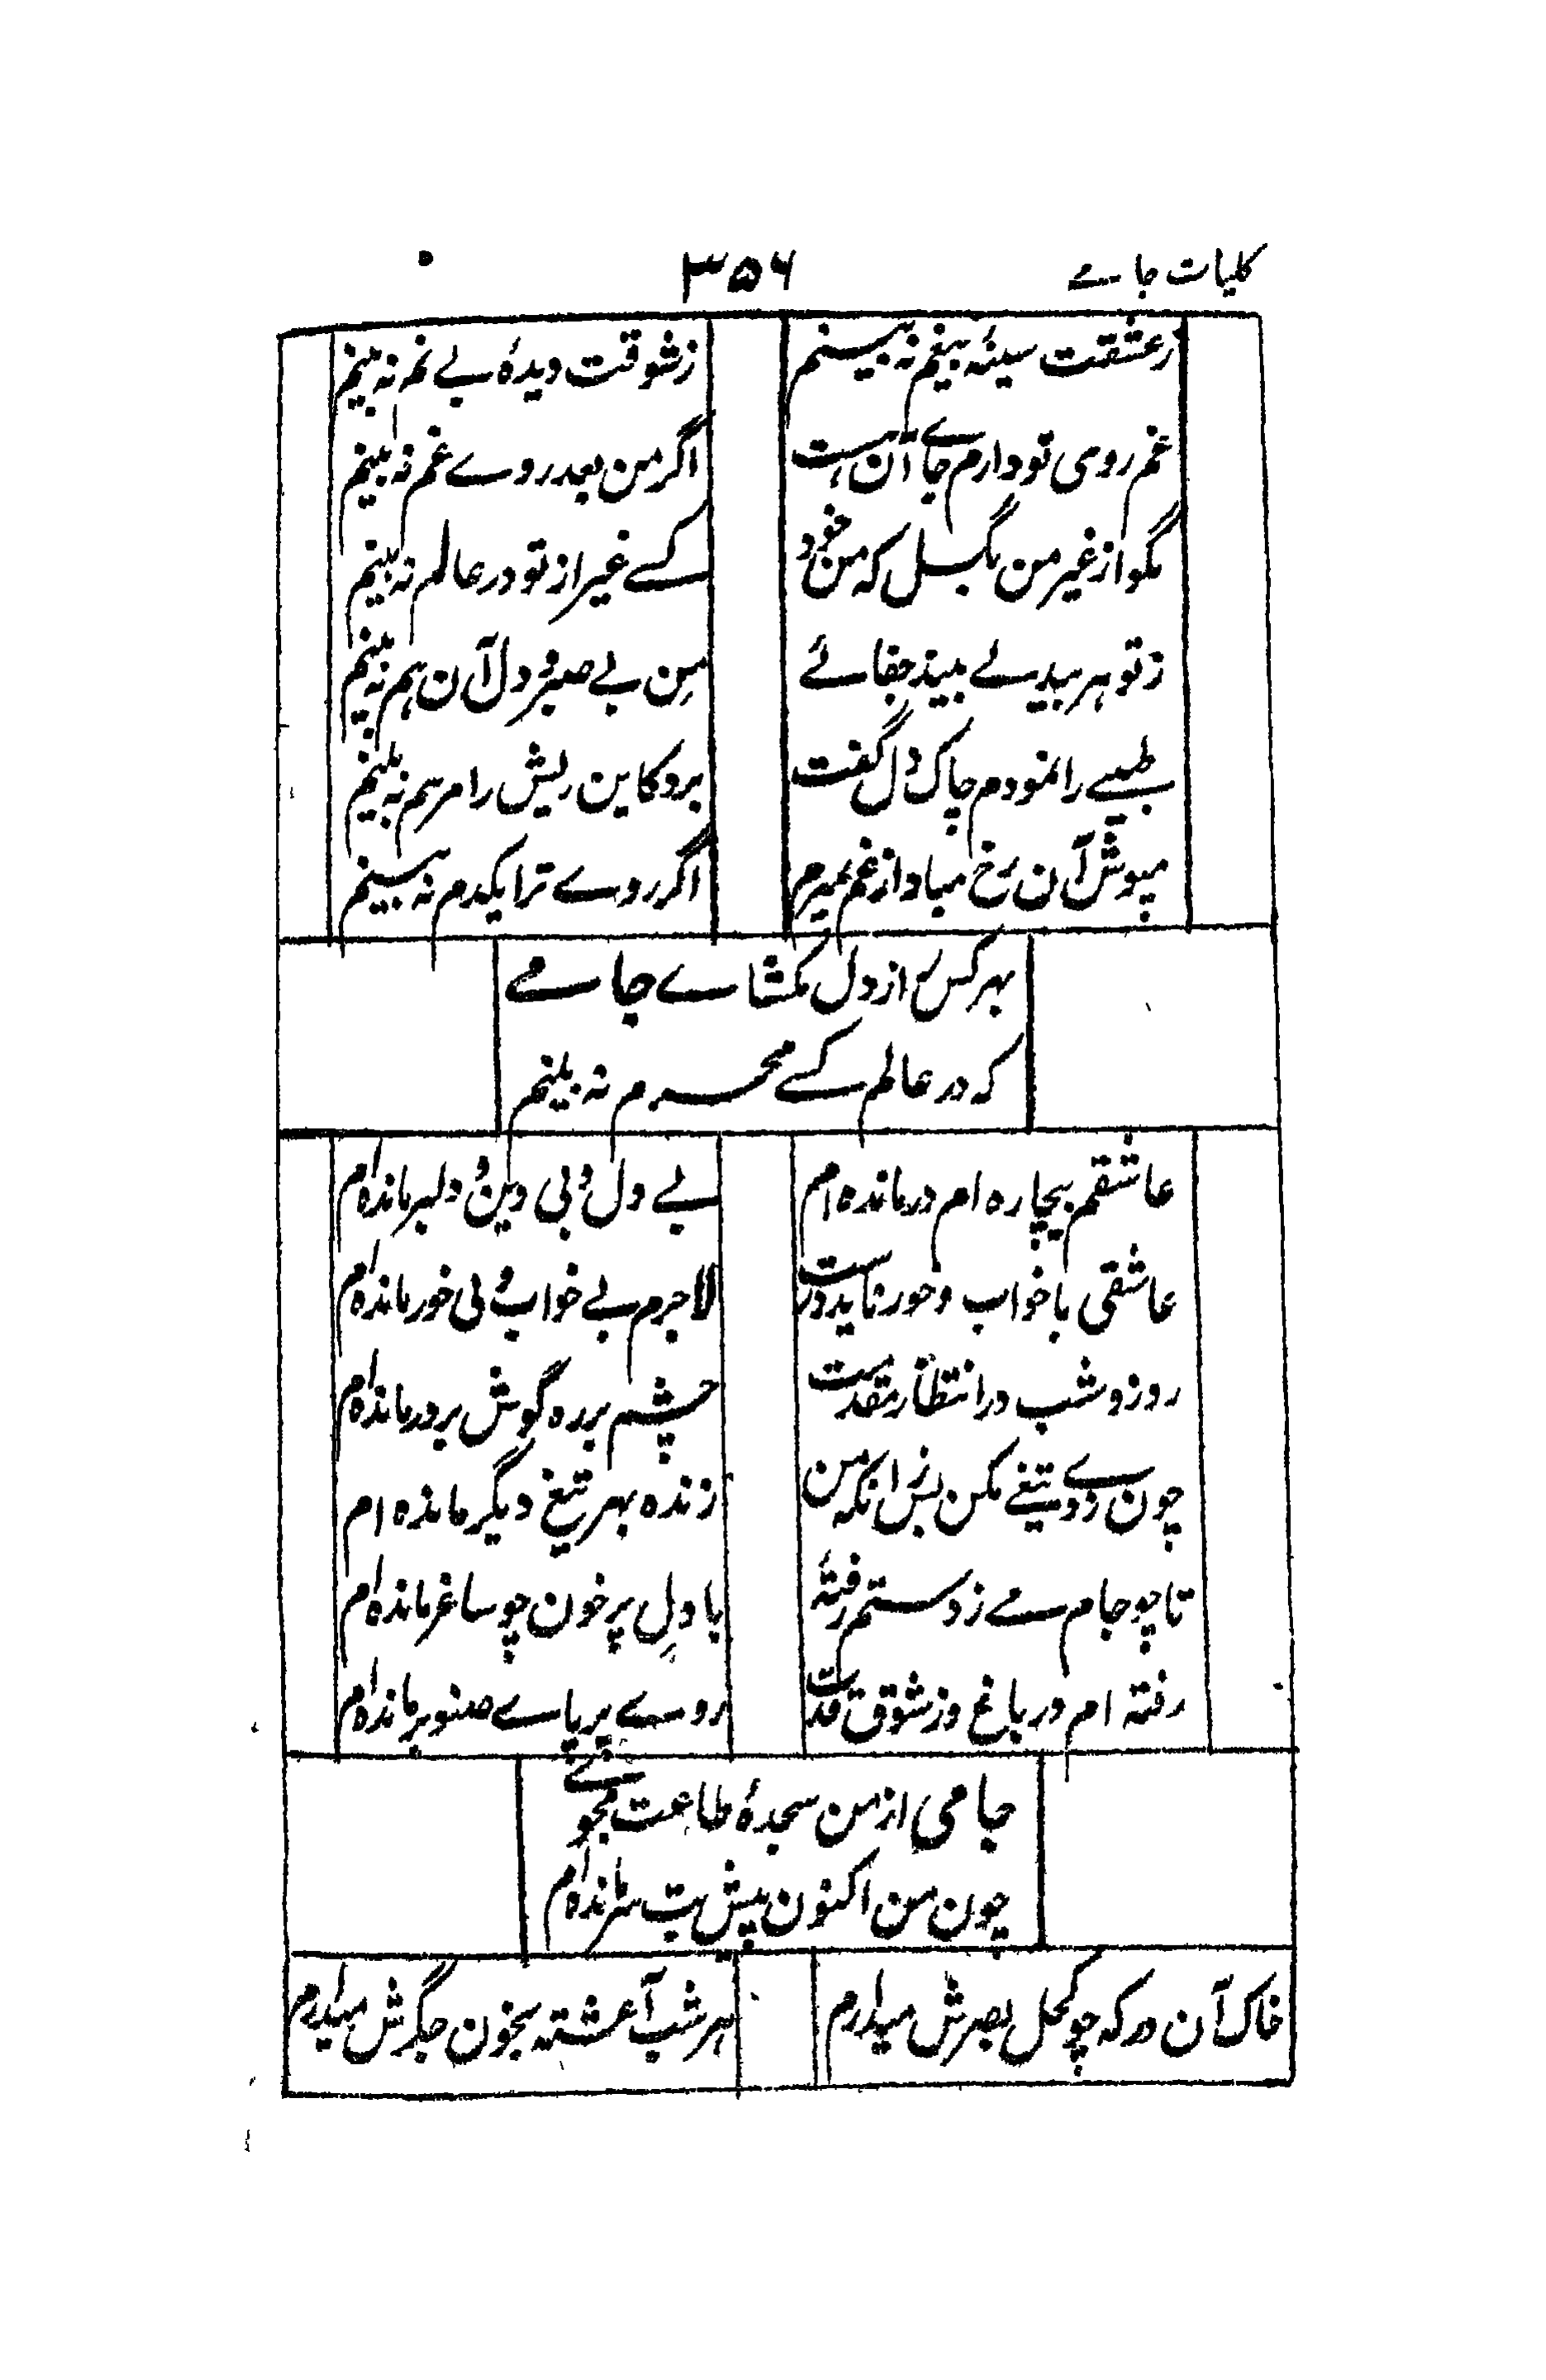 کلیات جامے ۳۵۶
زعشقت سینۂ بیغم نہ بینم زشوقت دیدۂ بے نم نہ بینم
غم روی تو دارم جاے آن ہست اگر من بعد روے غم نہ بینم
مگو از غیر من بگسل کہ من خود کسے غیر از تو در عالم نہ بینم
ز تو ہر بیدلے بیند جفائے من بے صبر و دل آن ہم نہ بینم
طبیبے را نمودم چاک دل گفت برو کاین ریش را مرہم نہ بینم
مپوش آن رخ مبادا از غم بمیرم اگر روے ترا یکدم نہ بینم
بہر کس راز دل مکشاے جامے
کہ در عالم کسے محرم نہ بینم
عاشقم بیچارہ ام درماندہ ام بے دل و بی دین و دلبر ماندہ ام
عاشقی با خواب و خور ناید درست لاجرم بے خواب و بی خور ماندہ ام
روز و شب در انتظار مقدمت چشم بر رہ گوش بر در ماندہ ام
چون زدے تیغے مکن بس زانکہ من زندہ بہر تیغ دیگر ماندہ ام
تا چو جام مے ز دستم رفتۂ با دلِ پر خون چو ساغر ماندہ ام
رفتہ ام در باغ وز شوق قدت روے بر پاے صنوبر ماندہ ام
جامی از من سجدۂ طاعت مجوے
چون من اکنون پیش بت سر ماندہ ام
خاک آن در کہ چو کحل بصرش میدارم ہر شب آغشتہ بخون جگرش میدارم